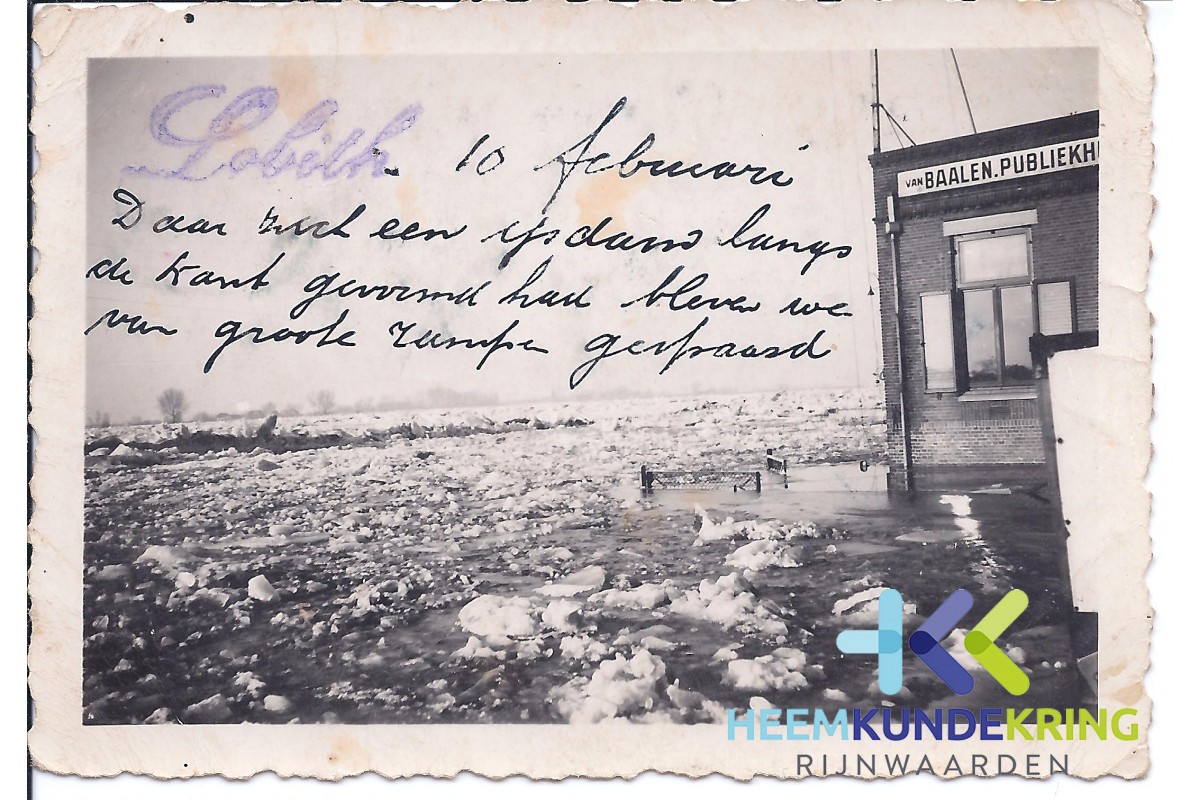 Lobith. 10 februari
Daar zich een ijsdam langs
de kant gevormd had bleven we
van groote rampen gespaard
VAN BAALEN. PUBLIEKH
HEEMKUNDEKRING
RIJNWAARDEN